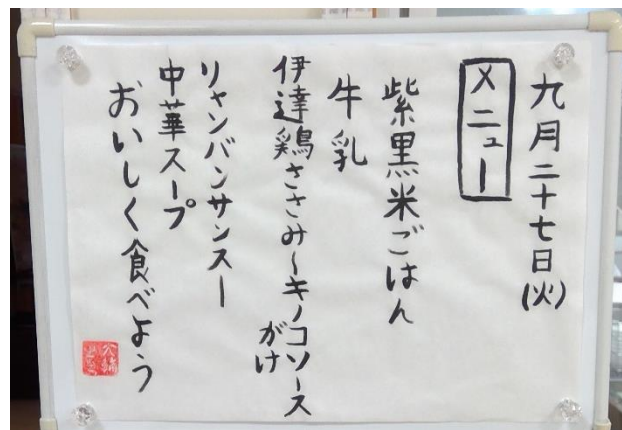 九月二十七日(火)
メニュー
紫黒米ごはん
牛乳
伊達鶏ささみ~キノコソース
がけ
リャンバンサンスー
中華スープ
おいしく食べよう